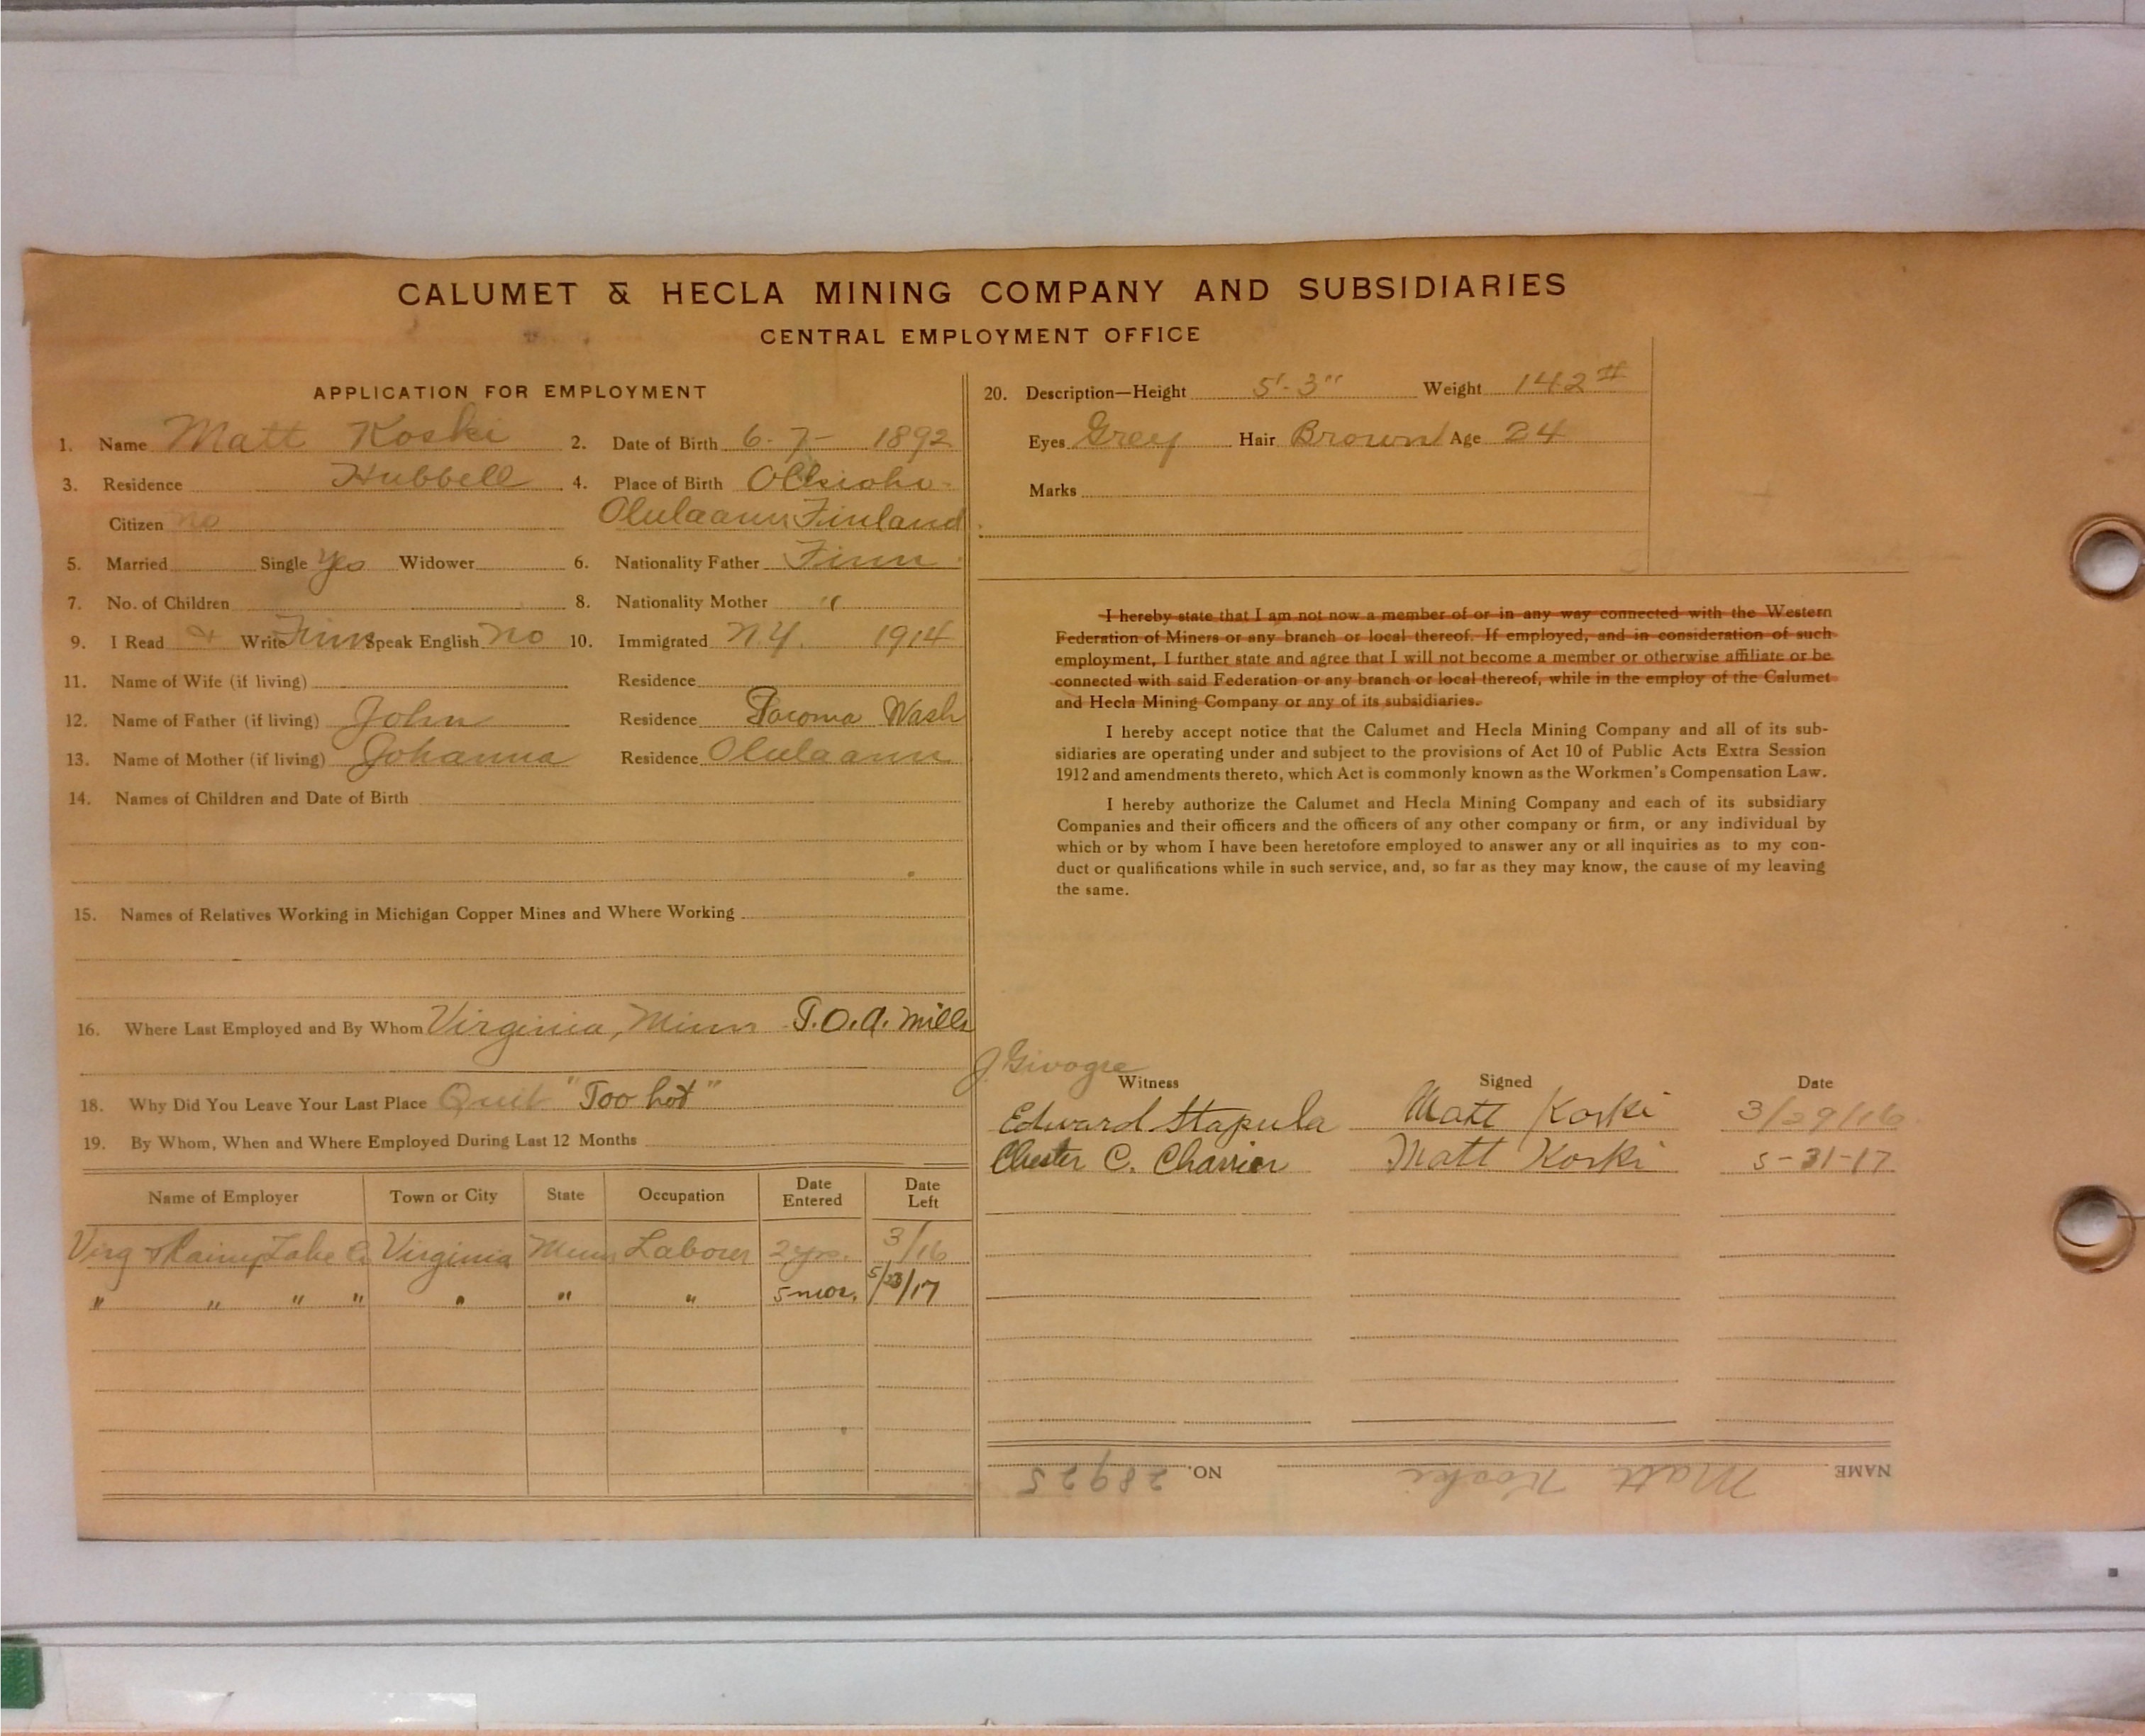 CALUMET & HECLA MINING COMPANY AND SUBSIDIARIES
CENTRAL EMPLOYMENT OFFICE
APPLICATION FOR EMPLOYMENT
1. Name Matt Koski 2. Date of Birth 6-7- 1892
3. Residence Hubbell 4. Place of Birth
Citizen no Finland
5. Married Single Yes Widower 6. Nationality Father Finn
7. No. of Children 8. Nationality Mother "
9. I Read & Write Finn Speak English no 10. Immigrated N.Y. 1914
11. Name of Wife (if living) Residence
12. Name of Father (if living) John Residence Tacoma Wash
13. Name of Mother (if living) Johanna Residence
14. Names of Children and Date of Birth
15. Names of Relatives Working in Michigan Copper Mines and Where Working
16. Where Last Employed and By Whom Virginia, Minn mills
18. Why Did You Leave Your Last Place Quit "Too hot"
19. By Whom, When and Where Employed During Last 12 Months
Name of Employer Town or City State Occupation Date Entered Date Left
Virg & Rainy Lake Co Virginia Minn Laborer 2 yrs. 3/16
" " " " " " " 5 mos. 5/23/17
20. Description—Height 5'-3" Weight 142#
Eyes Grey Hair Brown Age 24
Marks
I hereby state that I am not now a member of or in any way connected with the Western
Federation of Miners or any branch or local thereof. If employed, and in consideration of such
employment, I further state and agree that I will not become a member or otherwise affiliate or be
connected with said Federation or any branch or local thereof, while in the employ of the Calumet
and Hecla Mining Company or any of its subsidiaries.
I hereby accept notice that the Calumet and Hecla Mining Company and all of its sub-
sidiaries are operating under and subject to the provisions of Act 10 of Public Acts Extra Session
1912 and amendments thereto, which Act is commonly known as the Workmen's Compensation Law.
I hereby authorize the Calumet and Hecla Mining Company and each of its subsidiary
Companies and their officers and the officers of any other company or firm, or any individual by
which or by whom I have been heretofore employed to answer any or all inquiries as to my con-
duct or qualifications while in such service, and, so far as they may know, the cause of my leaving
the same.
J. Givogre
Witness Signed Date
Edward Stapula Matt Koski 3/29/16
Chester C. Charrier Matt Koski 5-31-17
NAME Matt Koski NO. 28925